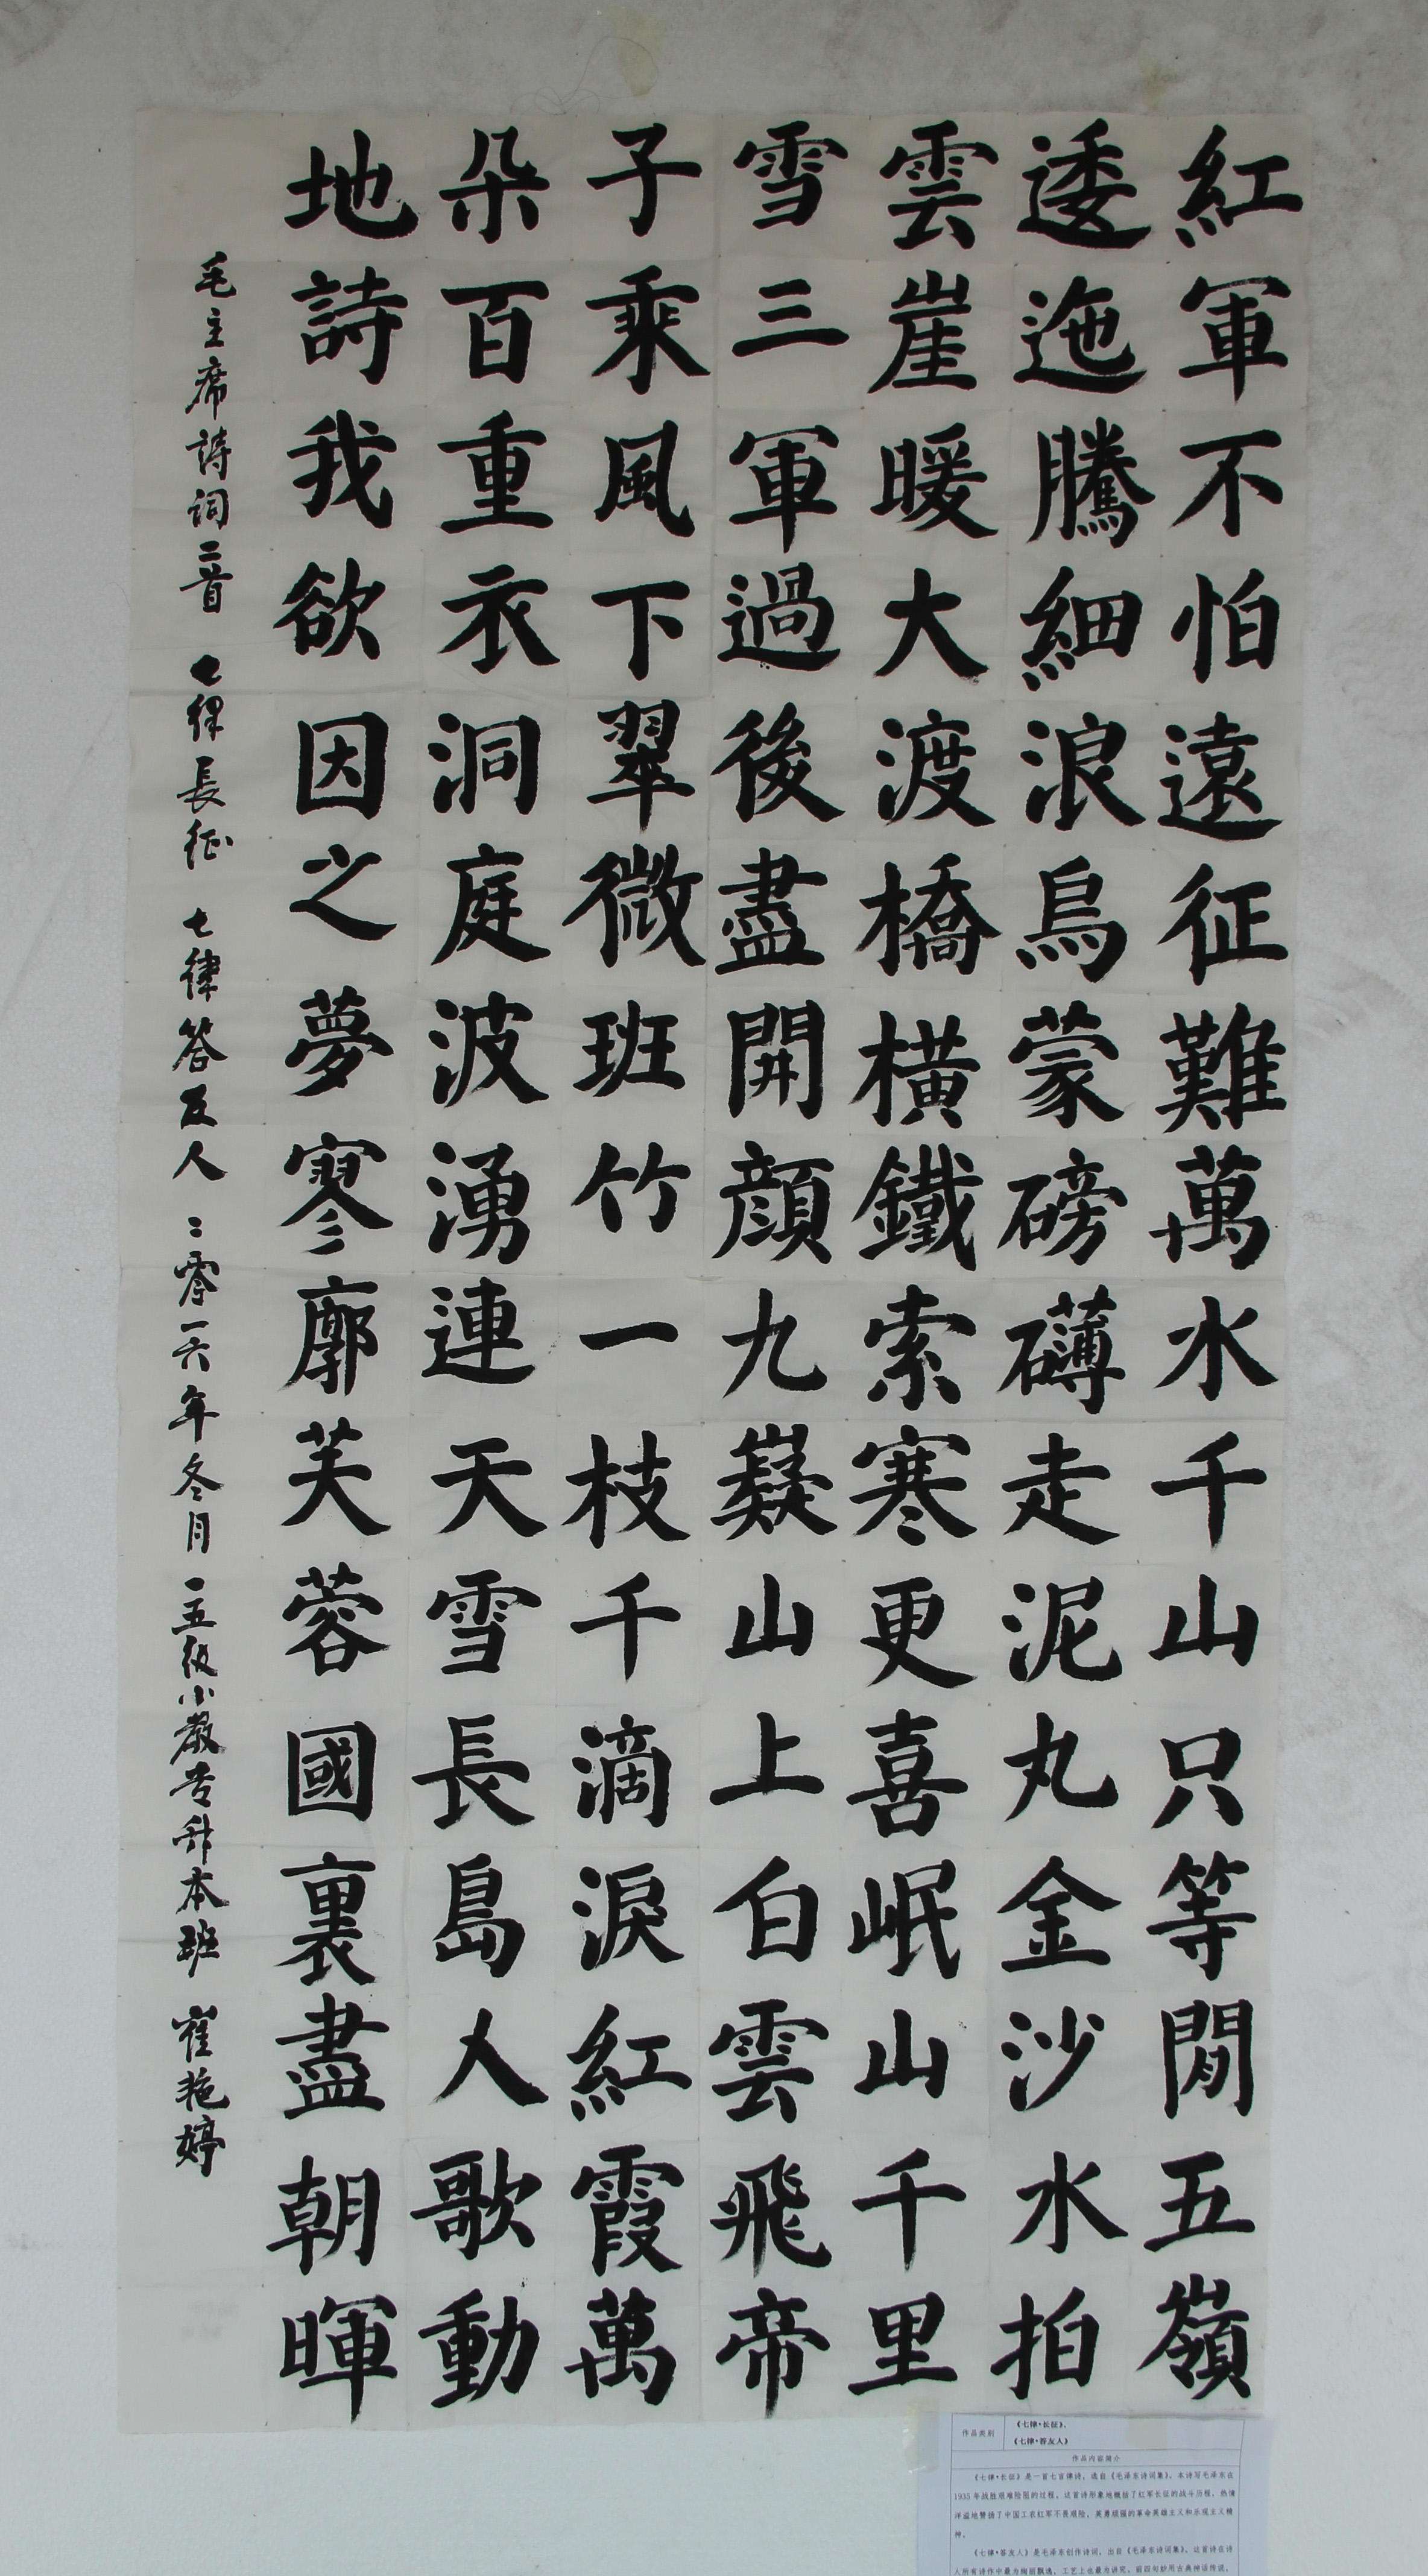 紅軍不怕遠征難萬水千山只等閒五嶺
逶迤騰細浪烏蒙磅礴走泥丸金沙水拍
雲崖暖大渡橋橫鐵索寒更喜岷山千里
雪三軍過後盡開顏九嶷山上白雲飛帝
子乘風下翠微班竹一枝千滴淚紅霞萬
朵百重衣洞庭波湧連天雪長島人歌動
地詩我欲因之夢寥廓芙蓉國裏盡朝暉
毛主席詩詞二首 七律長征 七律答友人 二零一六年冬月 一五級小教专升本班 崔艳婷
作品类别
《七律·长征》、
《七律·答友人》
作品内容简介
《七律·长征》是一首七言律诗，选自《毛泽东诗词集》。本诗写毛泽东在
1935年战胜艰难险阻的过程。这首诗形象地概括了红军长征的战斗历程，热情
洋溢地赞扬了中国工农红军不畏艰险，英勇顽强的革命英雄主义和乐观主义精
神。
《七律·答友人》是毛泽东创作诗词，出自《毛泽东诗词集》。这首诗在诗
人所有诗作中最为绚丽飘逸，工艺上也最为讲究。前四句妙用古典神话传说，